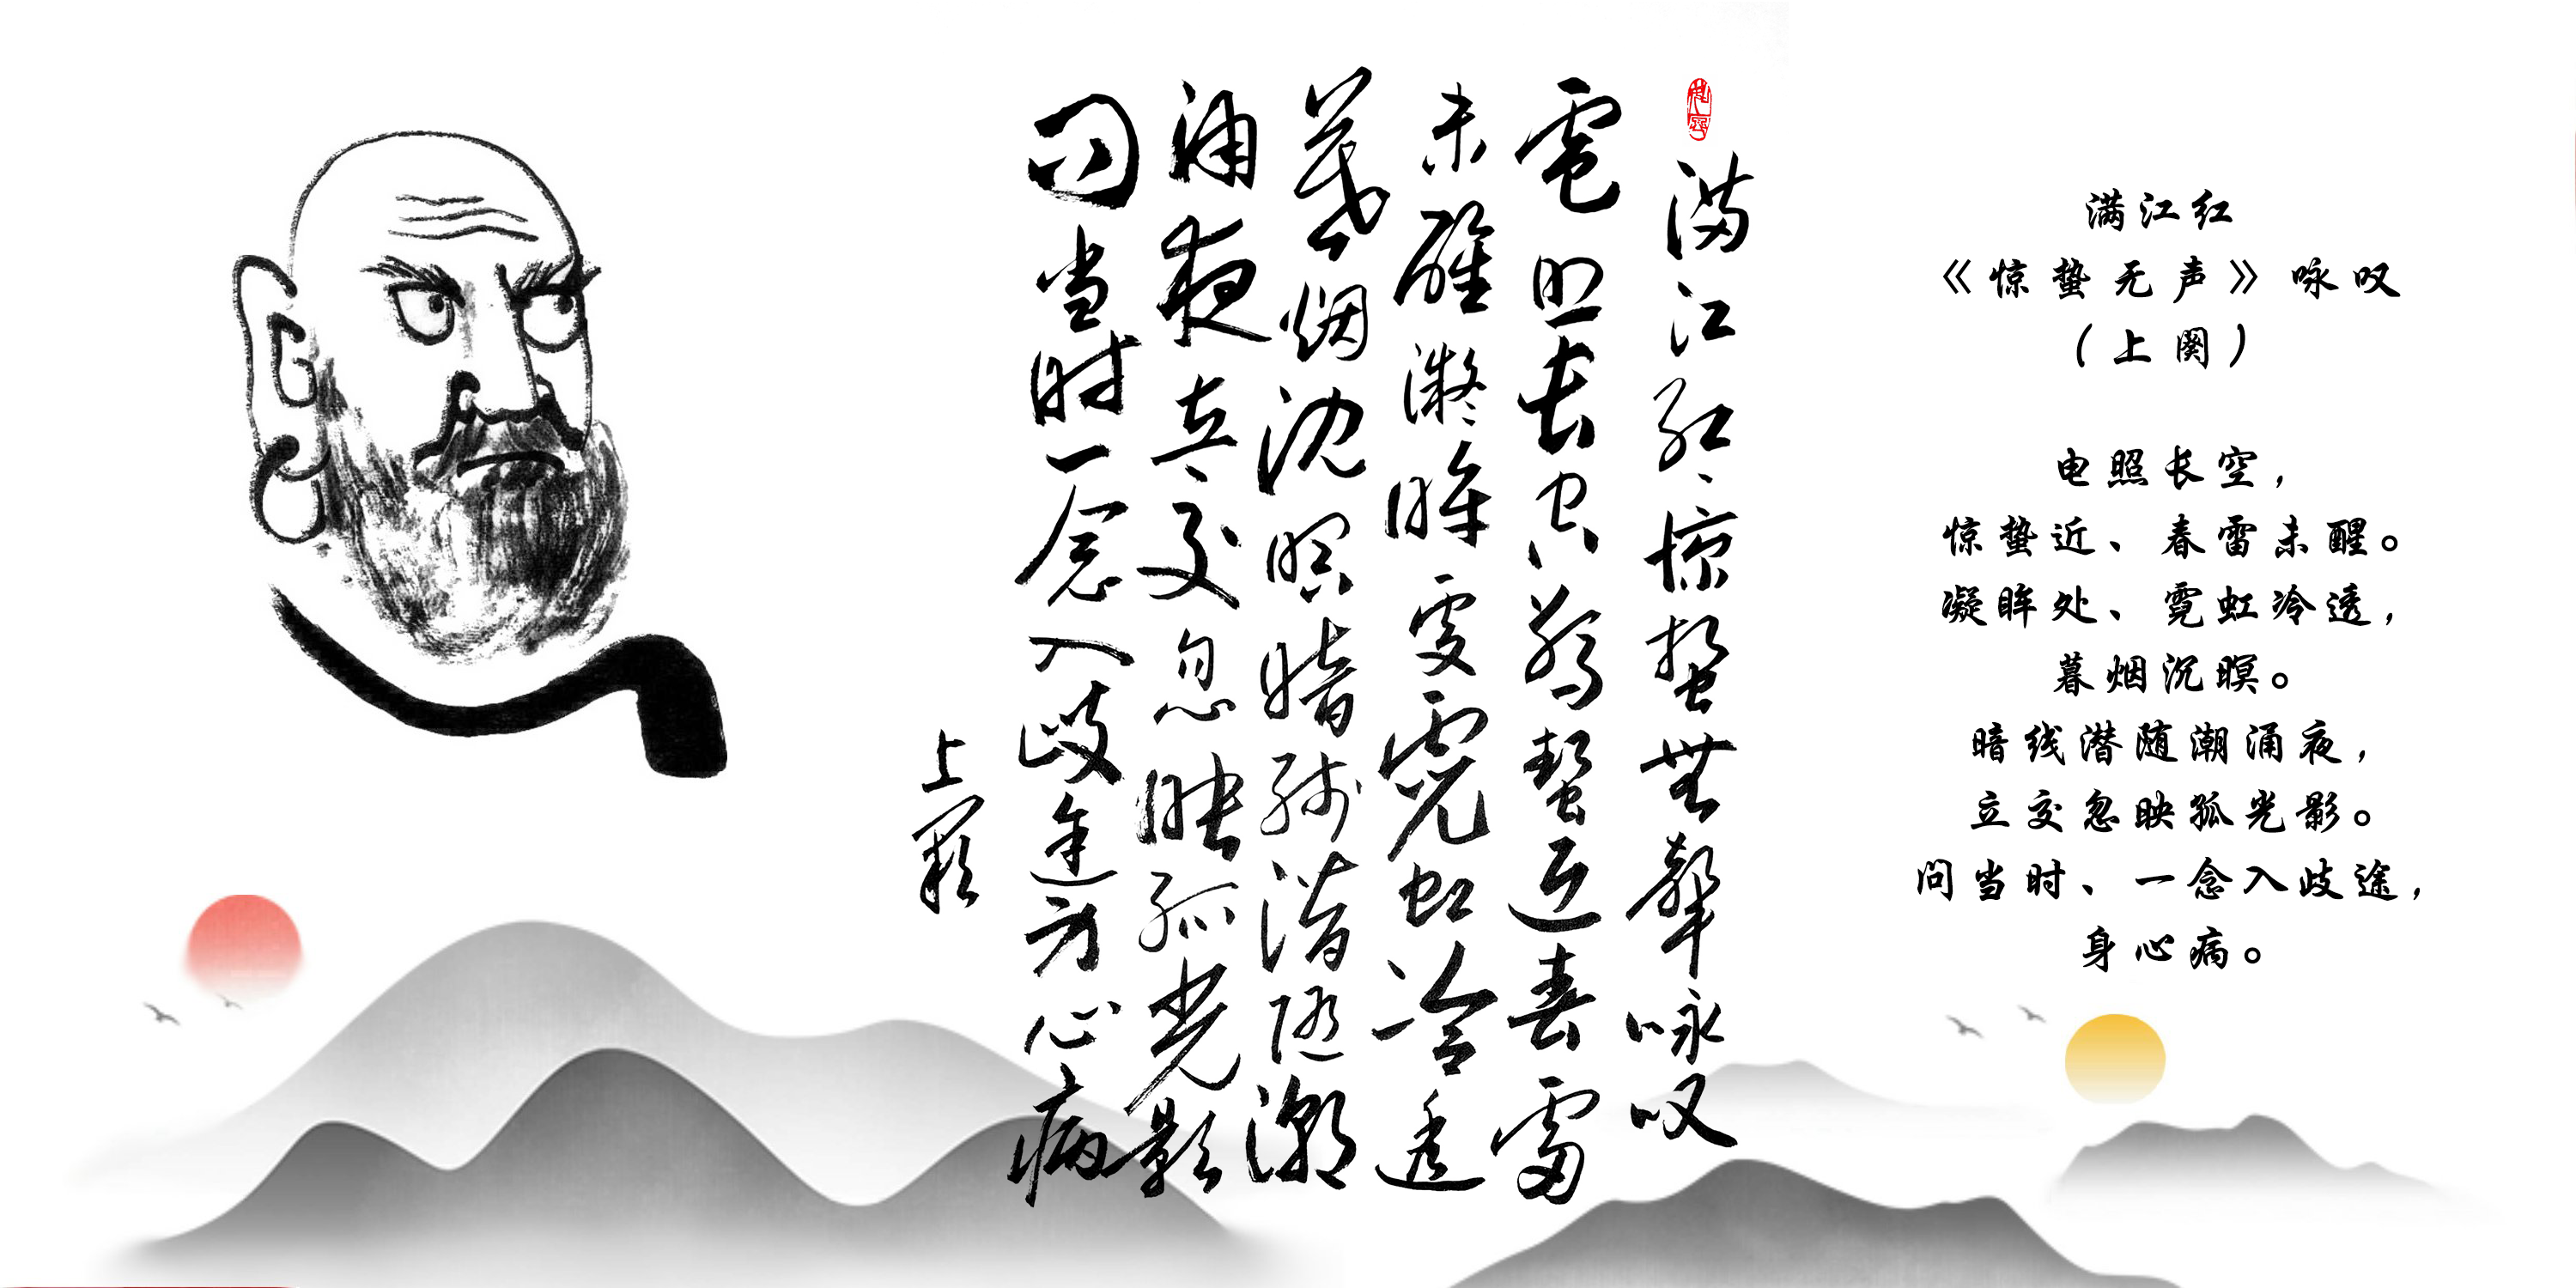 满江红
《惊蛰无声》咏叹
（上阕）
电照长空，
惊蛰近、春雷未醒。
凝眸处、霓虹冷透，
暮烟沉暝。
暗线潜随潮涌夜，
立交忽映孤光影。
问当时、一念入歧途，
身心病。
满江红惊蛰無聲咏叹
電照長空驚蟄近春雷
未醒凝眸處霓虹冷透
暮烟沈暝暗綫潜随潮
涌夜立交忽映孤光影
问当时一念入歧途身心病
上阕